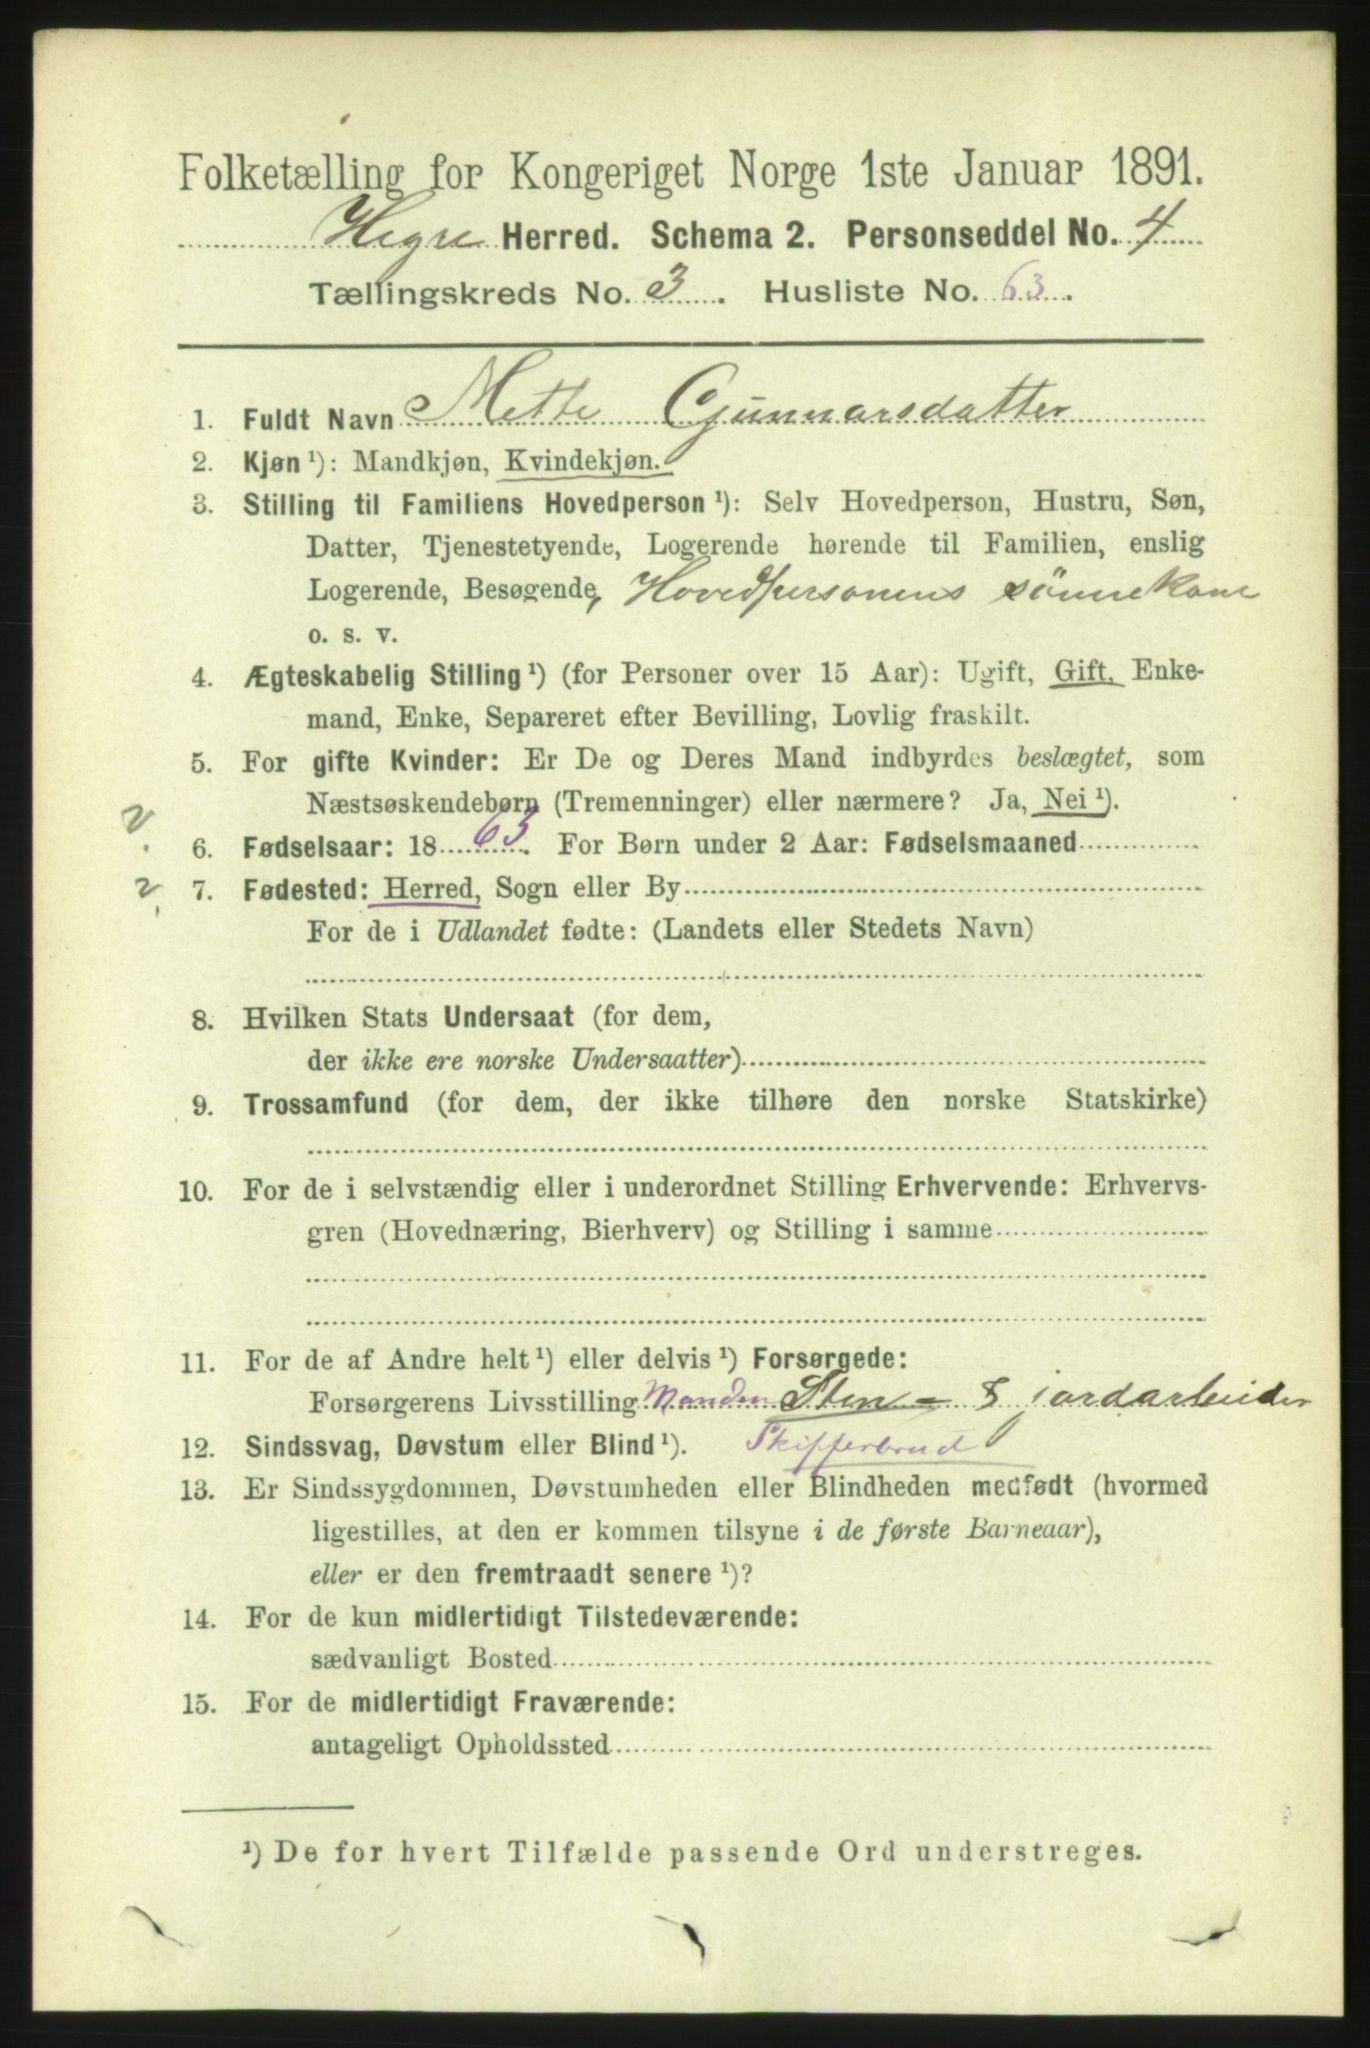 Folketælling for Kongeriget Norge 1ste Januar 1891.
Hegre Herred. Schema 2. Personseddel No. 4
Tællingskreds No. 3. Husliste No. 63.
1. Fuldt Navn Mette Gunnarsdatter
2. Kjøn ¹): Mandkjøn, Kvindekjøn.
3. Stilling til Familiens Hovedperson ¹): Selv Hovedperson, Hustru, Søn,
Datter, Tjenestetyende, Logerende hørende til Familien, enslig
Logerende, Besøgende, Hovedpersonens sönnekone
o. s. v.
4. Ægteskabelig Stilling ¹) (for Personer over 15 Aar): Ugift, Gift, Enke-
mand, Enke, Separeret efter Bevilling, Lovlig fraskilt.
5. For gifte Kvinder: Er De og Deres Mand indbyrdes beslægtet, som
Næstsøskendebørn (Tremenninger) eller nærmere? Ja, Nei ¹).
6. Fødselsaar: 1863. For Børn under 2 Aar: Fødselsmaaned
7. Fødested: Herred, Sogn eller By
For de i Udlandet fødte: (Landets eller Stedets Navn)
8. Hvilken Stats Undersaat (for dem,
der ikke ere norske Undersaatter)
9. Trossamfund (for dem, der ikke tilhøre den norske Statskirke)
10. For de i selvstændig eller i underordnet Stilling Erhvervende: Erhvervs-
gren (Hovednæring, Bierhverv) og Stilling i samme
11. For de af Andre helt ¹) eller delvis ¹) Forsørgede:
Forsørgerens Livsstilling Manden Sten - & jordarbeider
12. Sindssvag, Døvstum eller Blind ¹). Skifferbrud
13. Er Sindssygdommen, Døvstumheden eller Blindheden medfødt (hvormed
ligestilles, at den er kommen tilsyne i de første Barneaar),
eller er den fremtraadt senere ¹)?
14. For de kun midlertidigt Tilstedeværende:
sædvanligt Bosted
15. For de midlertidigt Fraværende:
antageligt Opholdssted
¹) De for hvert Tilfælde passende Ord understreges.